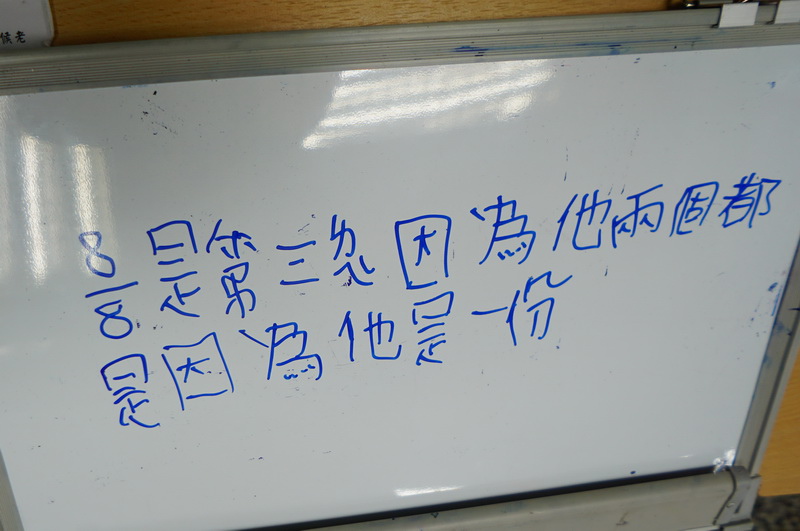 候老
8/8是第三忽因為他兩個都
是因為他是一份